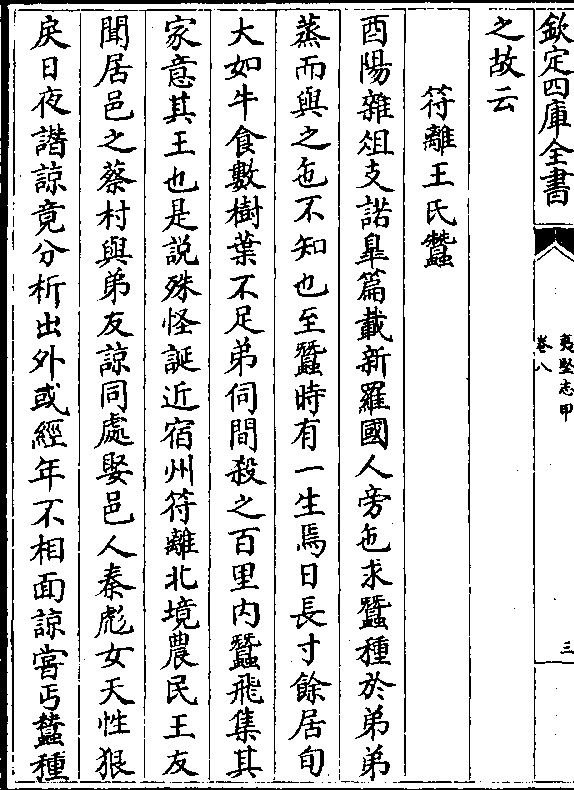 欽定四庫全書
夷堅志甲
卷八
三
之故云
符離王氏蠶
酉陽雜俎支諾臯篇載新羅國人旁㐌求蠶種於弟弟
蒸而與之㐌不知也至蠶時有一生焉日長寸餘居旬
大如牛食數樹葉不足弟伺間殺之百里内蠶飛集其
家意其王也是説殊怪誕近宿州符離北境農民王友
聞居邑之蔡村與弟友諒同處娶邑人秦彪女天性狠
戾日夜譖諒竟分析出外或經年不相面諒嘗丐蠶種